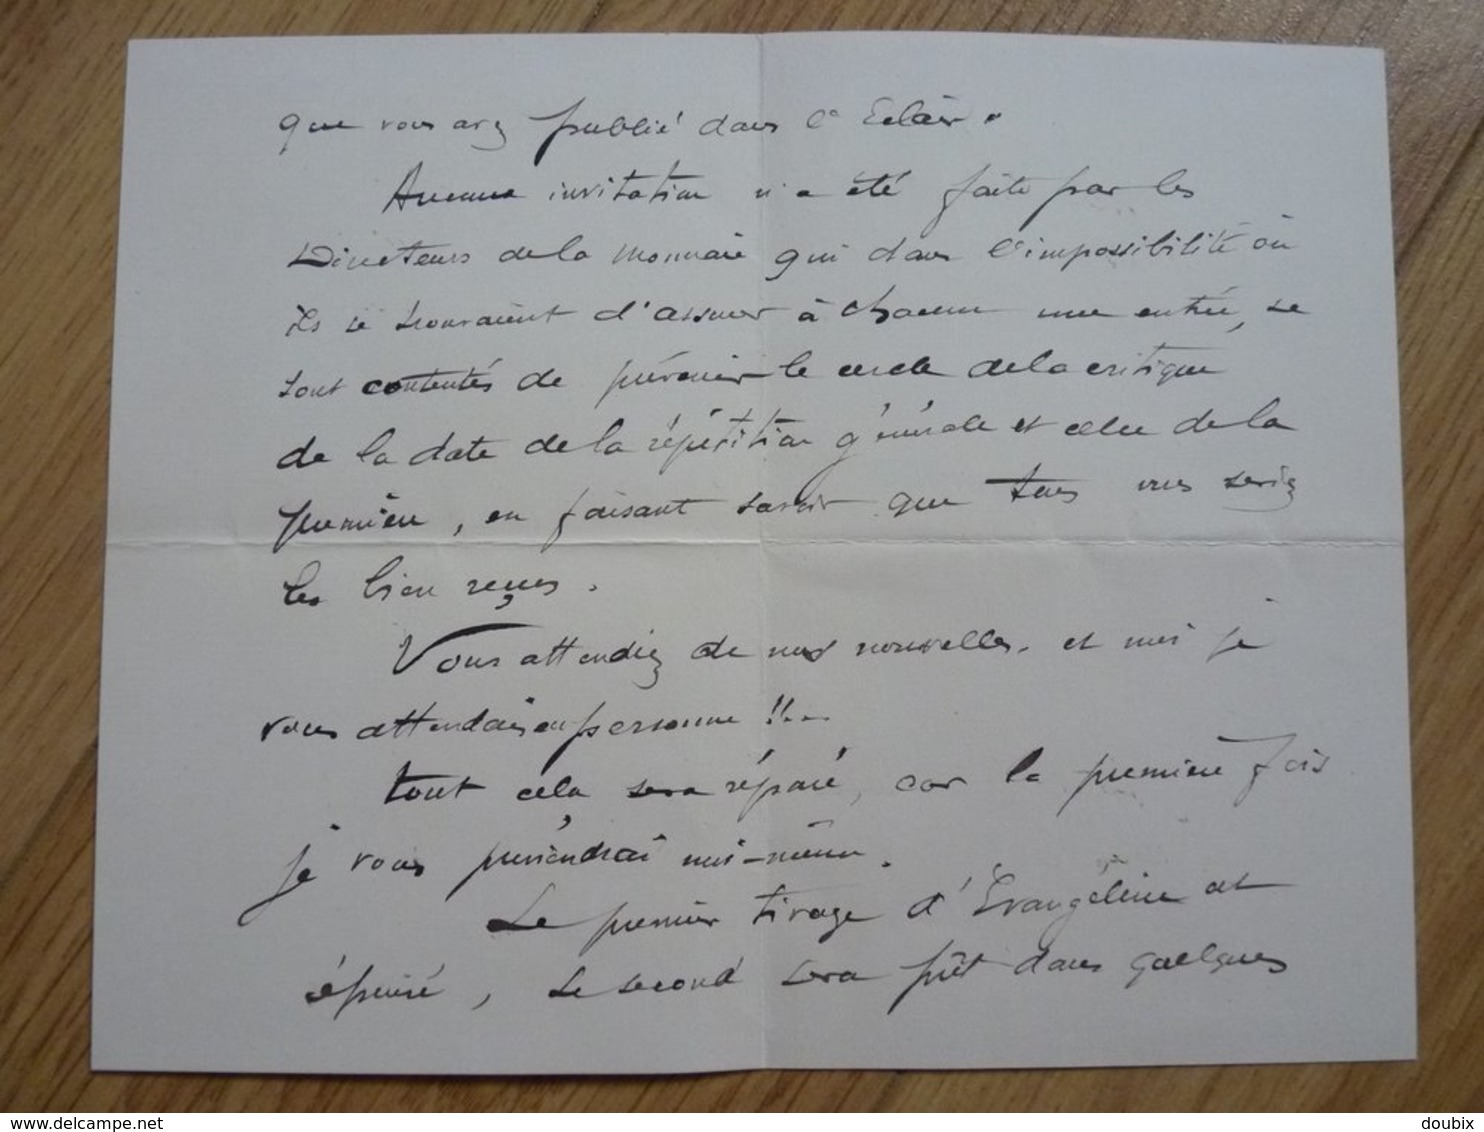 que vous avez publié dans l'Eclair.
Aucune invitation n'a été faite par les
Directeurs de la Monnaie qui dans l'impossibilité où
ils se trouvaient d'assurer à chacun une entrée, se
sont contentés de prévenir le cercle de la critique
de la date de la répétition générale et celle de la
première, en faisant savoir que tous vous seriez
les bien reçus.
Vous attendiez de nos nouvelles. et moi je
vous attendais en personne !!...
tout cela sera réparé, car la première fois
je vous préviendrai moi-même.
Le premier tirage d'Evangéline est
épuisé, le second sera prêt dans quelques
www.delcampe.net
doubix